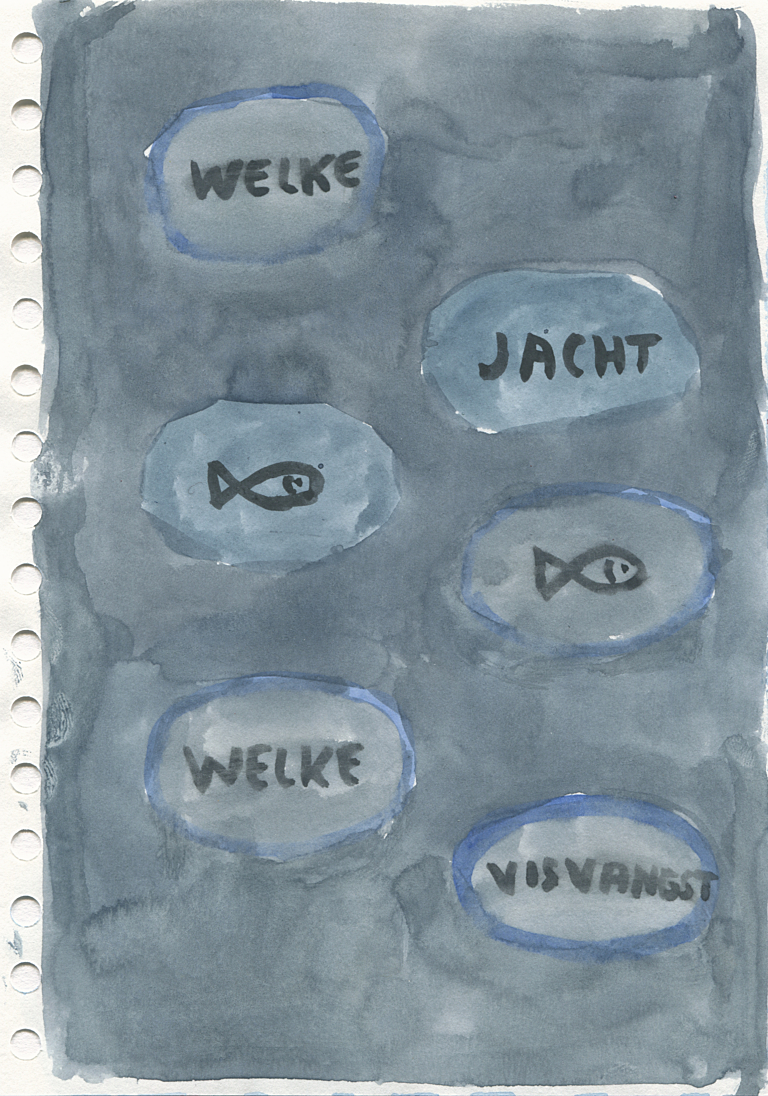 WELKE
JACHT
WELKE
VISVANGST